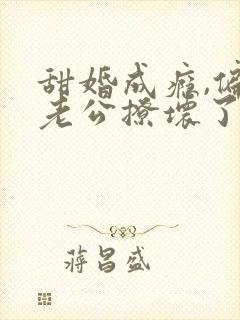 甜婚成瘾,偏
老公撩坏了
蒋昌盛